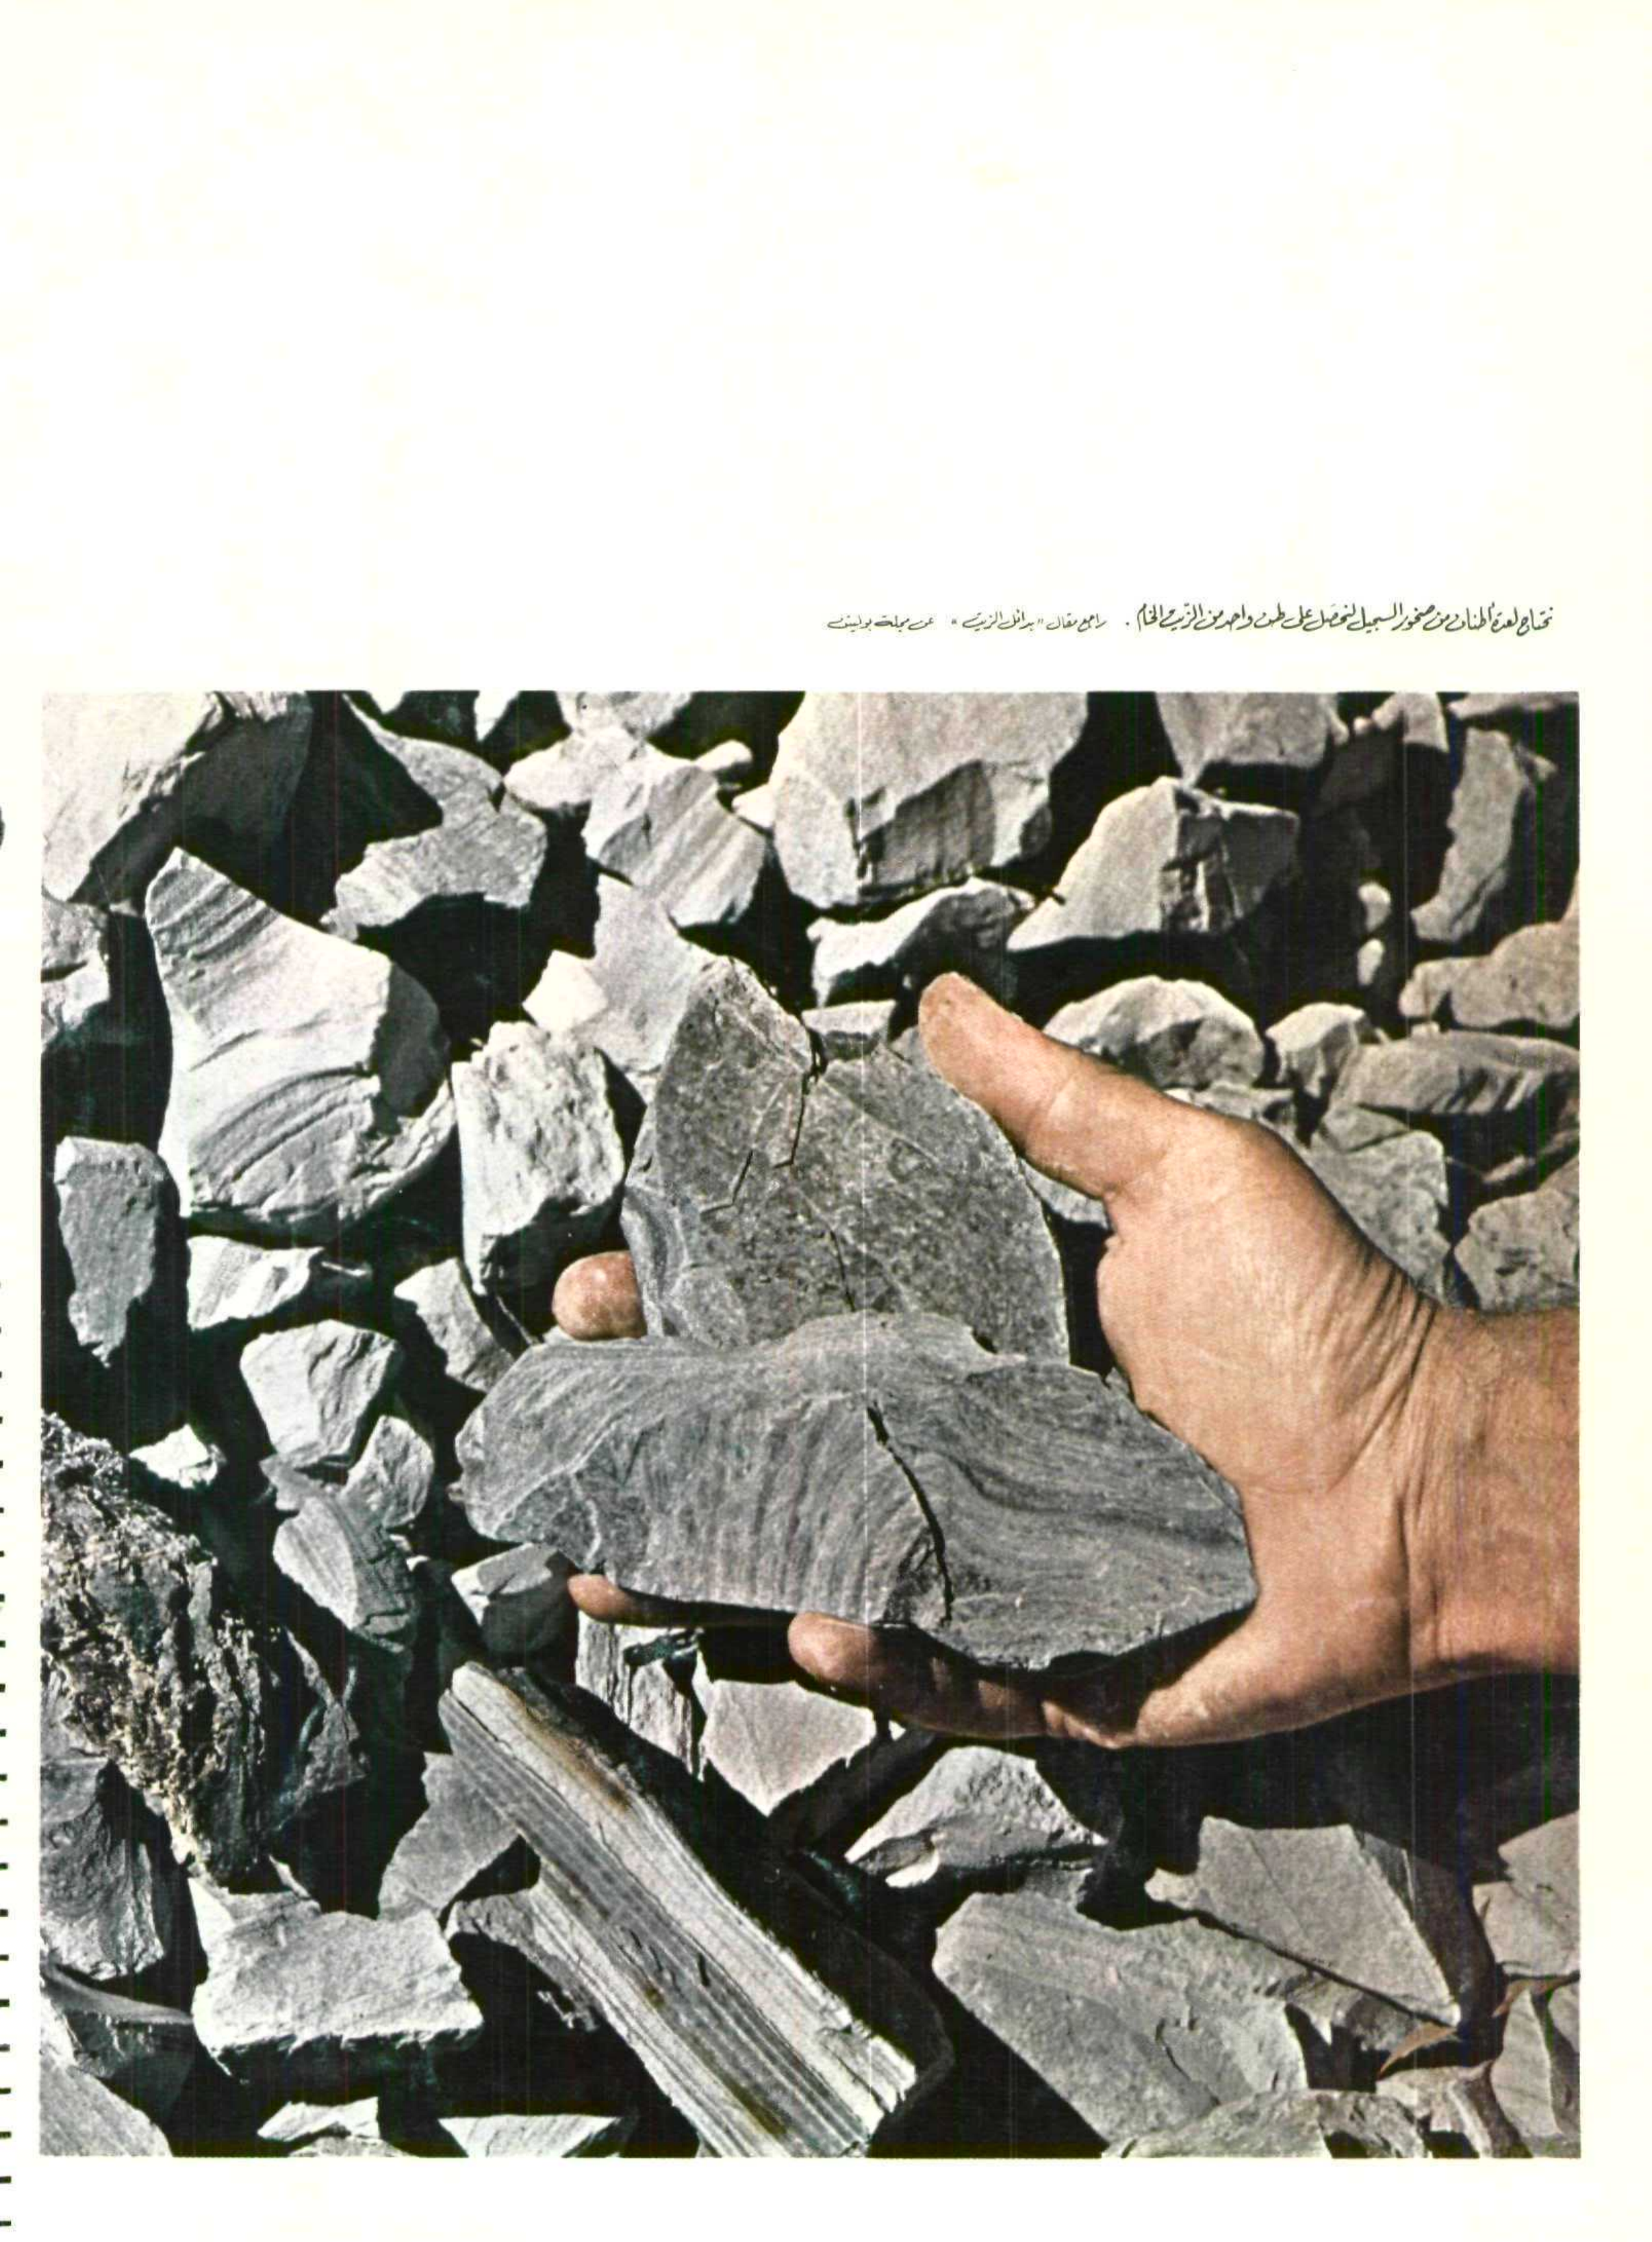 نحتاج لعدة أطنان من صخور السجيل لنحصل على طن واحد من الزّيت الخام . راجع مقال "بدائل الزيت" عن مجلة بوليتن